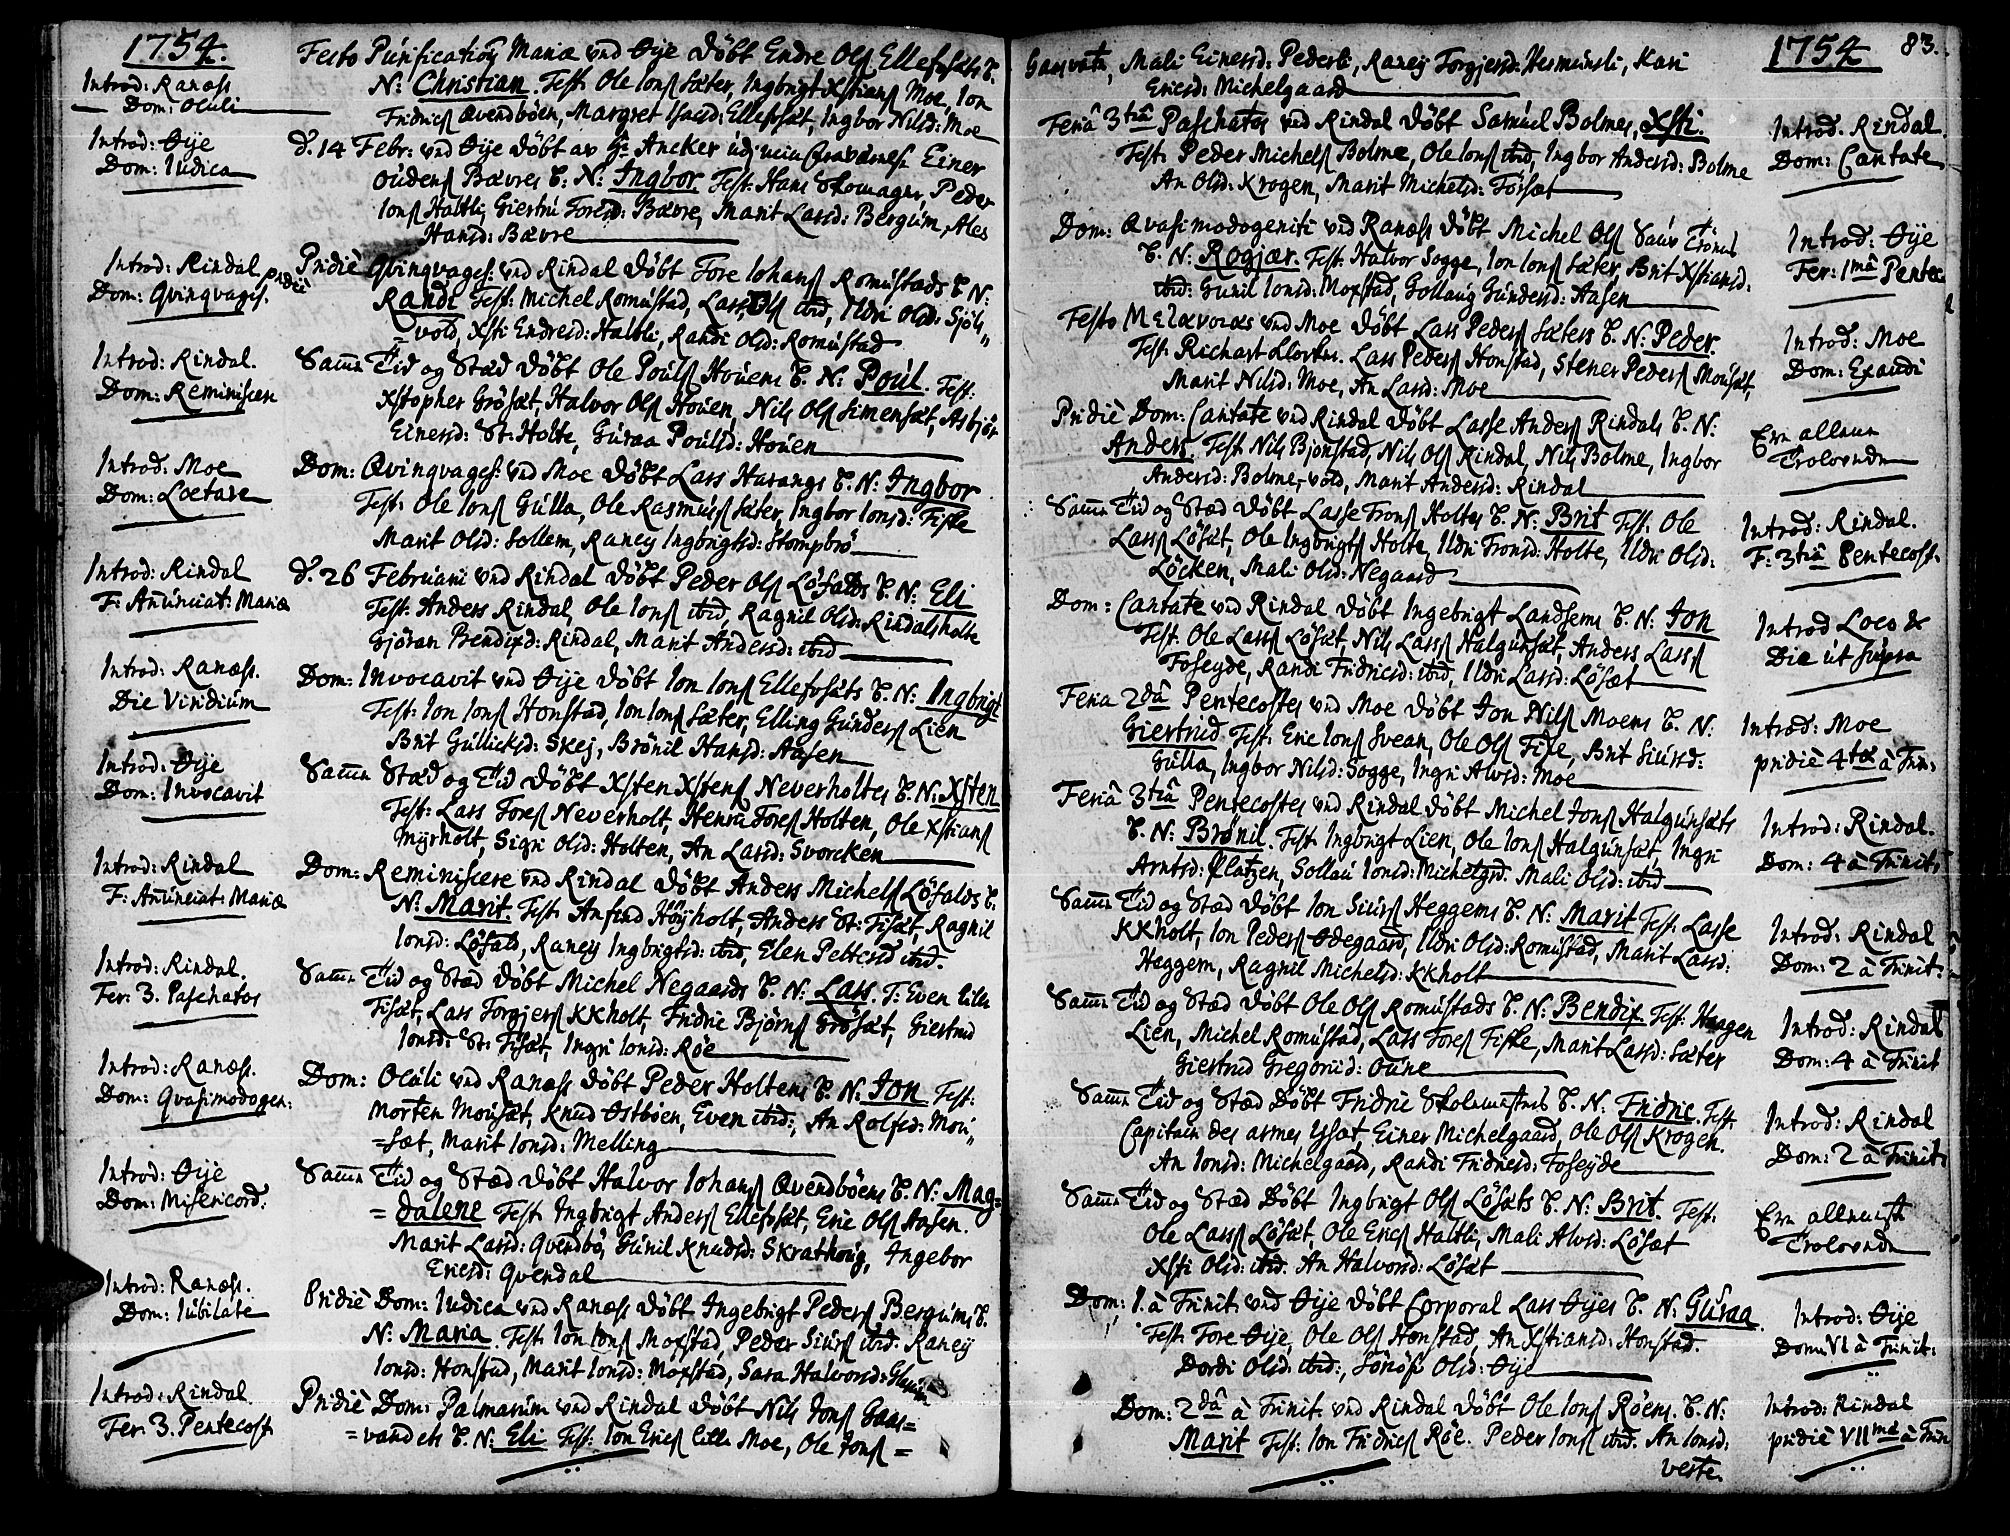 1754.
Introd: Ranæss
Dom: Oculi
Introd: Øije
Dom: Iudica
Introd: Rindal pridiè
Dom: Qvinqvages.
Introd: Rindal.
Dom: Reminiscere
Introd: Moe
Dom: Loetare
Introd: Rindal
F: Anunciat: Mariæ
Introd: Ranæss.
Die Viridium
Introd: Øije
Dom: Invocavit
Introd: Rindal
F: Anunciat: Mariæ
Introd: Rindal.
Fer: 3. Paschatos
Introd: Ranæss.
Dom: Qvasimodogen:
Introd: Øije
Dom: Misericord.
Introd: Ranæss.
Dom: Iubilate
Introd: Rindal
Fer: 3. Pentecost.
Festo Purificationis Mariæ ved Øije døbt Endre Ols Ellefsæts B.
N: Christian. Test: Ole Ions Sæter, Ingbrigt Xstians Moe, Ion
Fridrics Qvendbøen, Margret Isacsd: Ellefsæt, Ingbor Nilsd: Moe
d. 14 Febr: ved Øije døbt av Hr Ancker Einer
Oudens Bævres B. N: Ingbor Test: Hans Skomager, Peder
Ions Haltli, Giertru Foresd: Bævre, Marit Larsd: Bergum, Ales
Hansd: Bævre
Pridiè Qvinqvages: ved Rindal døbt Fore Iohans Romustads B. N:
Randi Test: Michel Romustad, Lars Ols ibid, Ildri Olsd: Sjöls„
=vold, Xsti Endresd: Haltli, Randi Olsd: Romustad
Samme Tid og Stæd døbt Ole Pouls Houens B. N: Poul. Test:
Xstopher Grösæt, Halvor Ols Houen, Nils Ols Simensæt, Asbjör
Einersd: St: Holte, Guraa Poulsd: Houen
Dom: Qvinqvages: ved Moe døbt Lars Harangs B. N: Ingbor
Test: Ole Ions Gulla, Ole Rasmus Sæter, Ingbor Ionsd: Fiske
Marit Olsd: Sollem, Raney Ingbrigtsd: Stompbro
d. 26 Februarii ved Rindal døbt Peder Ols Løsæts B. N: Eli
Test: Anders Rindal, Ole Ions ibid, Ragnil Olsd: Rindalsholte
Gjöran Bendixd: Rindal, Marit Andersd: ibid
Dom: Invocavit ved Øije døbt Ion Ions Ellefsæts B. N: Ingbrigt
Test: Ion Ions Honstad, Ion Ions Sæter, Elling Gunders Lien
Brit Gullicksd: Skej, Brönil Hansd: Aasen
Samme Stæd og Tid døbt Xsten Xstens Neverholtes B. N: Xsten
Test: Lars Fores Neverholt, Henru Fores Holten, Ole Xstians
Myrholt, Sigri Olsd: Holten, An Larsd: Svorcken
Dom: Reminiscere ved Rindal døbt Anders Michels Løsalds B.
N: Marit. Test: Anfind Höyholt, Anders St: Fisæt, Ragnil
Ionsd: Løsald, Raney Ingbrigtsd: ibid, Elen Pettersd ibid.
Samme Tid og Stæd døbt Michel Negaards B. N: Lars. T: Even Lille
Fisæt, Lars Torgjers KKholt, Fridric Bjørns Grösæt, Giertrud
Ionsd: St: Fisæt, Ingri Ionsd: Røe
Dom: Oculi ved Ranæss døbt Peder Holtens B. N: Jon Test:
Morten Mousæt, Knud Østboen, Even ibid:, An Rolfsd: Mou„
=sæt, Marit Ionsd: Melling
Samme Tid og Stæd døbt Halvor Iohans Qvendbøens B. N: Mag=
=dalene Test: Ingbrigt Anders Ellefsæt, Eric Ols Aasen.
Marit Larsd: Qvendbö, Gunil Knudsd: Skrathoug, Ingebor
Ericsd: Qvendal
Pridiè Dom: Iudica ved Ranæss døbt Ingebrigt Peders Bergums B.
N: Maria. Test: Ion Ions Moxstad, Peder Siurs ibid. Raney
Ionsd: Honstad, Marit Ionsd: Moxstad, Sara Halvorsd: Glærum
Pridiè Dom: Palmarum ved Rindal døbt Nils Jons Gaas=
=vandets B. N: Eli Test: Ion Erics Lille Moe, Ole Jons =
1754 83.
Gaasvatn, Mali Einersd: Pederli, Raney Torgjersd: Hermunsli, Kari
Ericsd: Michelgaard
Feriâ 3tiâ Paschatos ved Rindal døbt Samuel Bolmes, Xsti.
Test: Peder Michels Bolme, Ole Ions ibid, Ingbor Andersd: Bolme
An Olsd: Krogen, Marit Michelsd: Försæt
Dom: Qvasimodogeniti ved Ranæss døbt Michel Ols
B. N: Rogjær. Test: Halvor Sogge, Ion Ions Sæter, Brit Xstiansd:
ibid: Gunil Ionsd: Moxstad, Gollaug Gundersd: Aasen
Festo ved Moe døbt Lars Peders Sæters B. N: Peder.
Test: Richart Klocker. Lars Peders Honstad, Stener Peders Mousæt,
Marit Nilsd: Moe, An Larsd: Moe
Pridiè Dom: Cantate ved Rindal døbt Lasse Anders Rindals B. N:
Anders. Test: Nils Bjørnstad, Nils Ols Rindal, Nils Bolme, Ingbor
Andersd: Bolmesvold, Marit Andersd: Rindal
Samme Tid og Stæd døbt Lasse Trons Holtes B. N: Brit Test: Ole
Lars Løsæt, Ole Ingbrigts Holte, Ildri Tronsd: Holte, Ildri Olsd:
Löcken, Mali Olsd: Negaard
Dom: Cantate ved Rindal døbt Ingebrigt Landsems B. N: Jon
Test: Ole Lars Løsæt, Nils Lars Halgunsæt, Anders Lars
Foseyde, Randi Fridricsd: ibid, Ildri Larsd: Løsæt
Feria 2dâ Pentecostes ved Moe døbt Jon Nils Moens B. N:
Giertrud. Test: Eric Ions Svean, Ole Ols Fixe, Brit Siursd:
Gulla, Ingbor Nilsd: Sogge, Ingri Alvsd: Moe
Feriâ 3tiâ Pentecostes ved Rindal døbt Michel Jons Halgunsæts
B. N: Brønil. Test: Ingbrigt Lien, Ole Ions Halgunsæt, Ingri
Arntsd: Platzen, Sollau Ionsd: Michelgrd. Mali Olsd: ibid
Samme Tid og Stæd døbt Ion Siurs Heggems B. N: Marit Test: Lasse
KKholt, Ion Peders Ødegaard, Ildri Olsd: Romustad, Marit Larsd:
Heggem, Ragnil Michelsd: KKholt
Samme Tid og Stæd døbt Ole Ols Romustads B. N: Bendix Test: Haagen
Lien, Michel Romustad, Lars Fores Fiske, Marit Larsd: Sæter
Giertrud Gregoriid: Oune
Samme Tid og Stæd døbt Fridric Skolemesters B. N: Fridric. Test:
Capitain des armes Ysæt, Einer Michelgaard, Ole Ols Krogen.
An Ionsd: Michelgaard, Randi Fridricsd: Foseyde
Samme Tid og Stæd døbt Ingbrigt Ols Løsæts B. N: Brit. Test:
Ole Lars Løsæt, Ole Erics Haltli, Mali Alvsd: Løsæt
Xsti Olsd: ibid. An Halvorsd: Løsæt
Dom: 1. à Trinit: ved Øije døbt Corporal Lars Øijes B. N: Guraa.
Test: Fore Øije, Ole Ols Honstad, An Xstiansd: Honstad.
Dordi Olsd: ibid:, Olsd: Øije
Dom: 2dâ à Trinit: ved Rindal døbt Ole Ions Røens. B. N:
Marit Test: Ion Fridrics Røe. Peder Ions ibid. An Ionsd:
veste.
Introd. Rindal
Dom: Cantate
Introd: Øije
Fer: 1mâ Pentec
Introd: Moe
Dom: Exaudi
Ero allene
Trolovede
Introd: Rindal.
F: 3tiâ Pentecost.
Introd Loco &
Die ut supra
Introd: Moe
pridiè 4tæ à Trin:
Introd: Rindal.
Dom: 4 à Trinit:
Introd: Rindal
Dom: 2 à Trinit:
Introd: Rindal
Dom: 4 à Trinit
Introd: Rindal
Dom: 2 à Trinit:
Ero alleneste
Trolovede
Introd: Øije
Dom: VI à Trinit:
Introd: Rindal
pridiè VIImæ à Trin